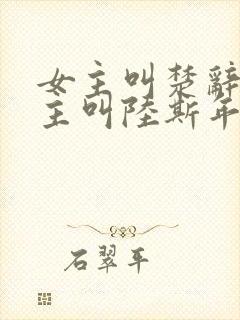 女主叫楚辭
主叫陸斯年
石翠平